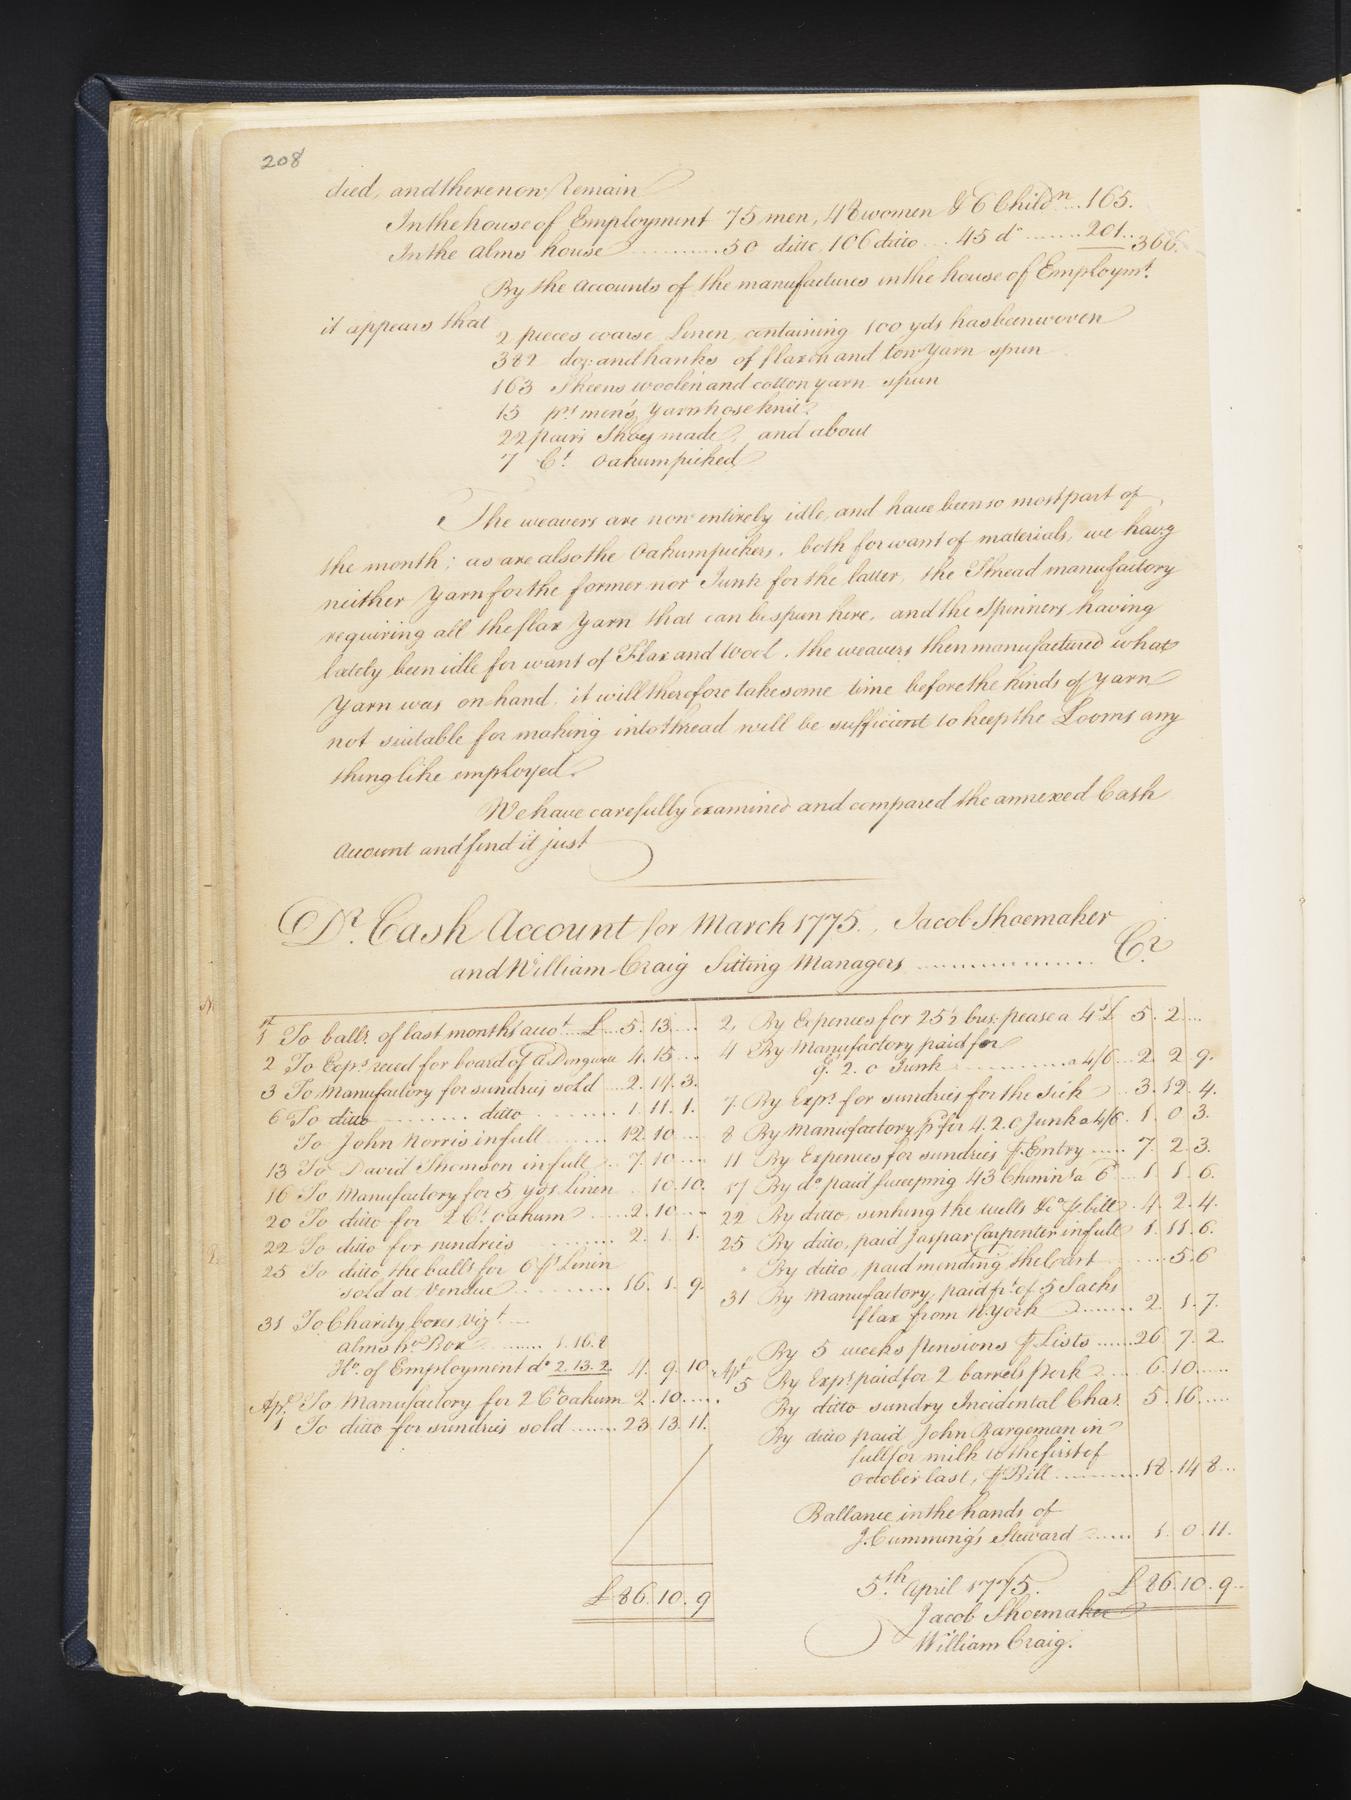 208
died, and there now Remain
In the house of Employment 75 men, 48 women & C Childn ... 165.
In the alms house ........... 50 ditto, 106 ditto ... 45 do ....... 201. 366.
By the accounts of the manufactures in the house of Employmt.
it appears that
2 pieces coarse Linen, containing 100 yds has been woven
382 doz: and hanks of flaxen and tow Yarn spun
163 Skeens woolen and cotton yarn spun
15 prs men's Yarn hose knit
22 pairs Shoes made, and about
7 Ct. Oakum picked
The weavers are now entirely idle, and have been so most part of
the month; as are also the Oakum pickers, both for want of materials, we havg
neither Yarn for the former nor Junk for the latter, the Thread manufactory
requiring all the flax Yarn that can be spun here, and the Spinners having
lately been idle for want of Flax and Wool. the weavers then manufactured what
Yarn was on hand, it will therefore take some time before the kinds of Yarn
not suitable for making into thread will be sufficient to keep the Looms any
thing like employed.
We have carefully examined and compared the annexed Cash
Account and find it just
Dr. Cash Account for March 1775., Jacob Shoemaker
and William Craig Sitting Managers ................ Cr
1st To balls. of last months acct ... £ .. 5. 13 ...
2 To Exps. reced for board of a Dingwell 4. 15 ...
3 To Manufactory for sundries sold ... 2. 14. 3.
6 To ditto ........ ditto ......... 1. 11. 1.
To John Norris in full ....... 12. 10 ....
13 To David Thomson in full ... 7. 10 ....
16 To Manufactory for 5 yds Linen . 10. 10.
20 To ditto for 2 Ct. oakum ...... 2. 10 ....
22 To ditto for sundries ........ 2. 1. 1.
25 To ditto, the balls for 6 ps Linen
sold at Vendue ........... 16. 1. 9.
31 To Charity boxes, Vizt ...
alms ho. Box ........ 1. 16. 8
Ho. of Employment do 2. 13. 2. 4. 9. 10.
Apr. To Manufactory for 2 Ct oakum 2. 10. ....
1 To ditto for sundries sold ....... 23. 13. 11.
£ 86. 10. 9
2, By Expences for 25½ bus. pease a 4s £ 5. 2 ...
4 By Manufactory paid for
9. 2. 0 Junk ............. a 4/6 ... 2. 2. 9.
7. By Exps. for sundries for the Sick .. 3. 12. 4.
8 By Manufactory pd for 4. 2. 0 Junk a 4/6. 1. 0 3.
11 By Expences for sundries ⅌ Entry ..... 7. 2. 3.
17 By do paid sweeping 43 Chimns a 6d ... 1. 1. 6.
22 By ditto, sinking the wells &c ⅌ bill .. 4. 2. 4.
25 By ditto, paid Jaspar Carpenter in full 1. 11. 6.
" By ditto, paid mending the Cart ...... 5. 6
31 By Manufactory, paid frt of 5 Sacks
flax from N. York ........ 2. 1. 7.
By 5 weeks pensions ⅌ Lists ...... 26. 7. 2.
Apr. 5 By Exps. paid for 2 barrels Pork ..... 6. 10 .....
By ditto sundry Incidental Chas. 5. 16 .....
By ditto paid John Bargeman in
full for milk to the first of
October last, ⅌ Bill ........... 18. 14 8 ...
Ballance in the hands of
J. Cumming's Steward ...... 1. 0. 11.
5th. April 1775. £ 86. 10. 9 ..
Jacob Shoemaker
William Craig.